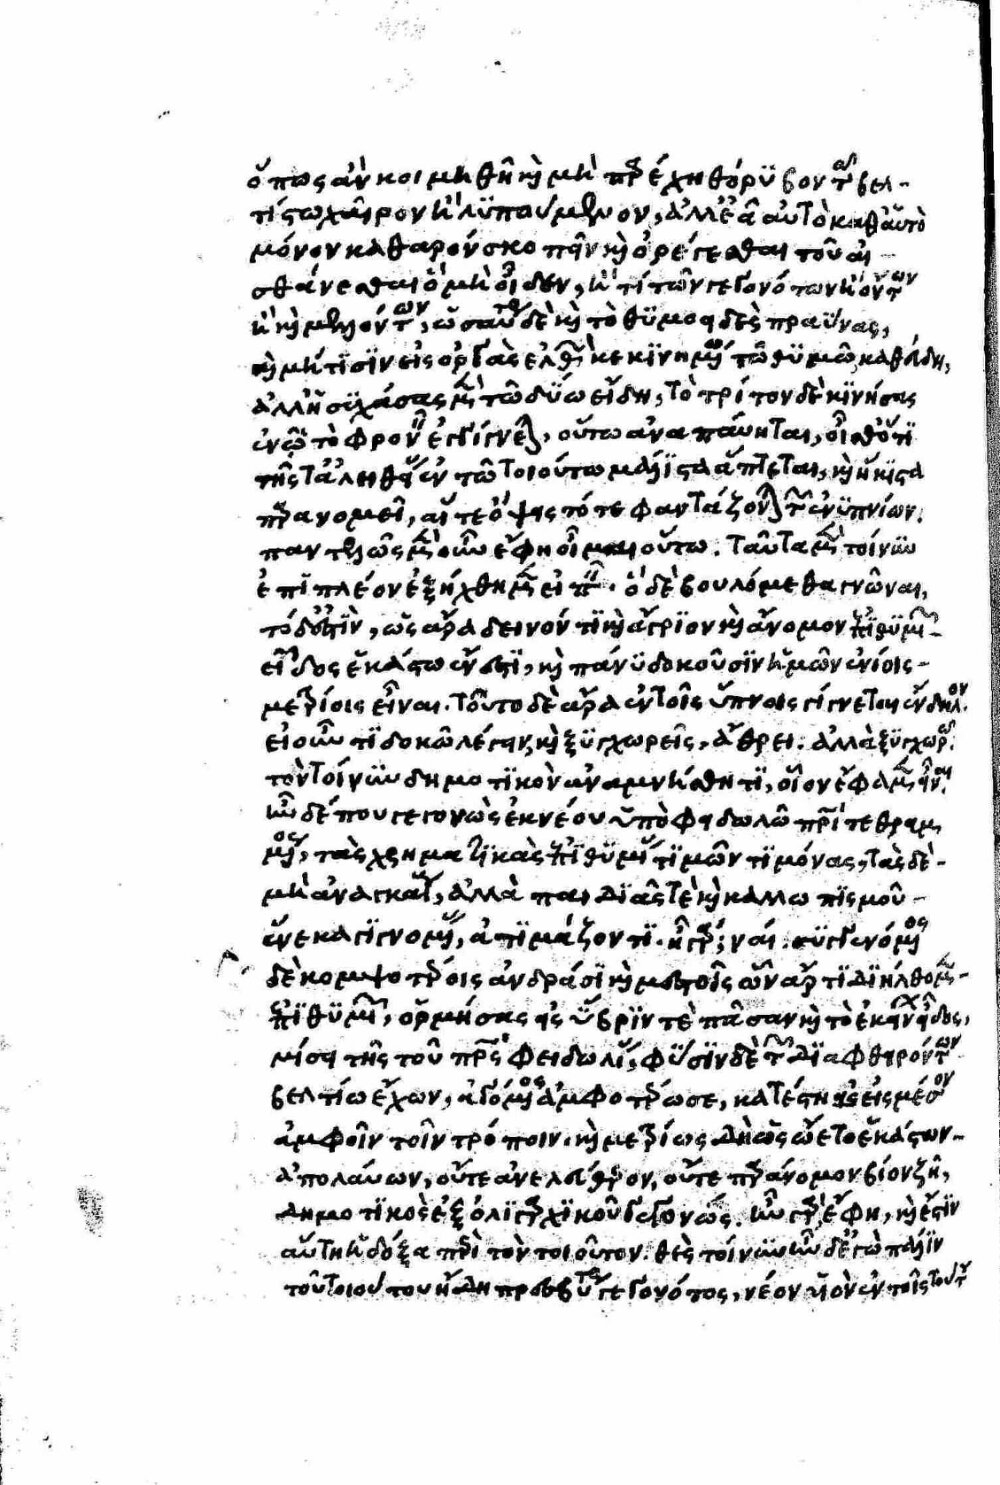 ὅπως ἂν κοιμηθῇ καὶ μὴ παρέχῃ θόρυβον τῷ βελ-
τίστῳ χαῖρον ἢ λυπούμενον, ἀλλ' ἐᾷ αὐτὸ καθ' αὑτὸ
μόνον καθαρὸν σκοπεῖν καὶ ὀρέγεσθαι του αἰ-
σθάνεσθαι ὃ μὴ οἶδεν, ἤ τι τῶν γεγονότων ἢ ὄντων
ἢ καὶ μελλόντων, ὡσαύτως δὲ καὶ τὸ θυμοειδὲς πραΰνας,
καὶ μή τισιν εἰς ὀργὰς ἐλθὼν κεκινημένῳ τῷ θυμῷ καθεύδῃ,
ἀλλ' ἡσυχάσας μὲν τὼ δύω εἴδη, τὸ τρίτον δὲ κινήσας
ἐν ᾧ τὸ φρονεῖν ἐγγίγνεται, οὕτω ἀναπαύηται, οἶσθ' ὅτι
τῆς τ' ἀληθείας ἐν τῷ τοιούτῳ μάλιστα ἅπτεται, καὶ ἥκιστα
παράνομοι, αἵ τε ὄψεις τότε φαντάζονται τῶν ἐνυπνίων.
παντελῶς μὲν οὖν ἔφη οἶμαι οὕτω. ταῦτα μὲν τοίνυν
ἐπὶ πλέον ἐξήχθημεν εἰπεῖν. ὃ δὲ βουλόμεθα γνῶναι,
τόδ' ἐστίν, ὡς ἄρα δεινόν τι καὶ ἄγριον καὶ ἄνομον ἐπιθυμιῶν
εἶδος ἑκάστῳ ἔνεστι, καὶ πάνυ δοκοῦσιν ἡμῶν ἐνίοις
μετρίοις εἶναι. τοῦτο δὲ ἄρα ἐν τοῖς ὕπνοις γίγνεται ἔνδηλον.
εἰ οὖν τι δοκῶ λέγειν καὶ ξυγχωρεῖς, ἄθρει. ἀλλὰ ξυγχωρῶ.
τὸν τοίνυν δημοτικὸν ἀναμνήσθητι, οἷον ἔφαμεν εἶναι.
ἦν δέ που γεγονὼς ἐκ νέου ὑπὸ φειδωλῷ πατρὶ τεθραμ
μένος, τὰς χρηματικὰς ἐπιθυμίας τιμῶντι μόνας, τὰς δὲ
μὴ ἀναγκαίους, ἀλλὰ παιδιᾶς τε καὶ καλλωπισμοῦ
ἕνεκα γιγνομένας, ἀτιμάζοντι. ἦ γάρ; ναί. συγγενόμενος
δὲ κομψοτέροις ἀνδράσι καὶ μεστοῖς ὧν ἄρτι διήλθομεν
ἐπιθυμιῶν, ὁρμήσας εἰς ὕβριν τε πᾶσαν καὶ τὸ ἐκείνων εἶδος,
μίσει τῆς τοῦ πατρὸς φειδωλίας, φύσιν δὲ τῶν διαφθειρόντων
βελτίω ἔχων, ἀγόμενος ἀμφοτέρωσε, κατέστη εἰς μέσον
ἀμφοῖν τοῖν τρόποιν. καὶ μετρίως δὴ ὡς ᾤετο ἑκάστων
ἀπολαύων, οὔτε ἀνελεύθερον, οὔτε παράνομον βίον ζῇ,
δημοτικὸς ἐξ ὀλιγαρχικοῦ γεγονώς. ἦν γὰρ ἔφη, καὶ ἔστιν
αὕτη ἡ δόξα περὶ τὸν τοιοῦτον. θὲς τοίνυν ἦν δ' ἐγὼ πάλιν
τοῦ τοιούτου ἤδη πρεσβυτέρου γεγονότος, νέον υἱὸν ἐν τοῖς τούτου